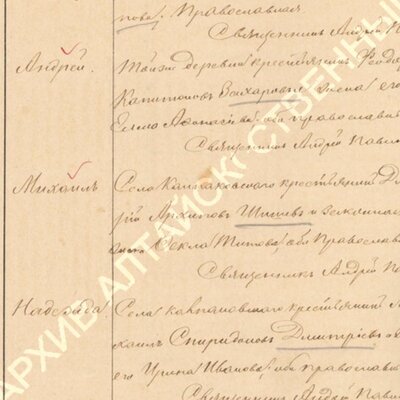 пова, Православная.
Священникъ Андрей
Андрей. Тойже деревни крестьянинъ Ѳедоръ
Капитоновъ Захаровъ и жена его
Елена Аѳанасіева, оба православн
Священникъ Андрей Павл
Михаилъ Села крестьянинъ
рій Архиповъ Шишевъ и законная
жена Ѳекла Титова, оба Православ
Священникъ Андрей П
Надежда Села крестьянинъ
хаилъ Спиридоновъ Дмитріевъ и
его Ирина Иванова, оба православ
Священникъ Андрей Пав
АРХИВ АЛТАЙСК СТВЕННЫЙ